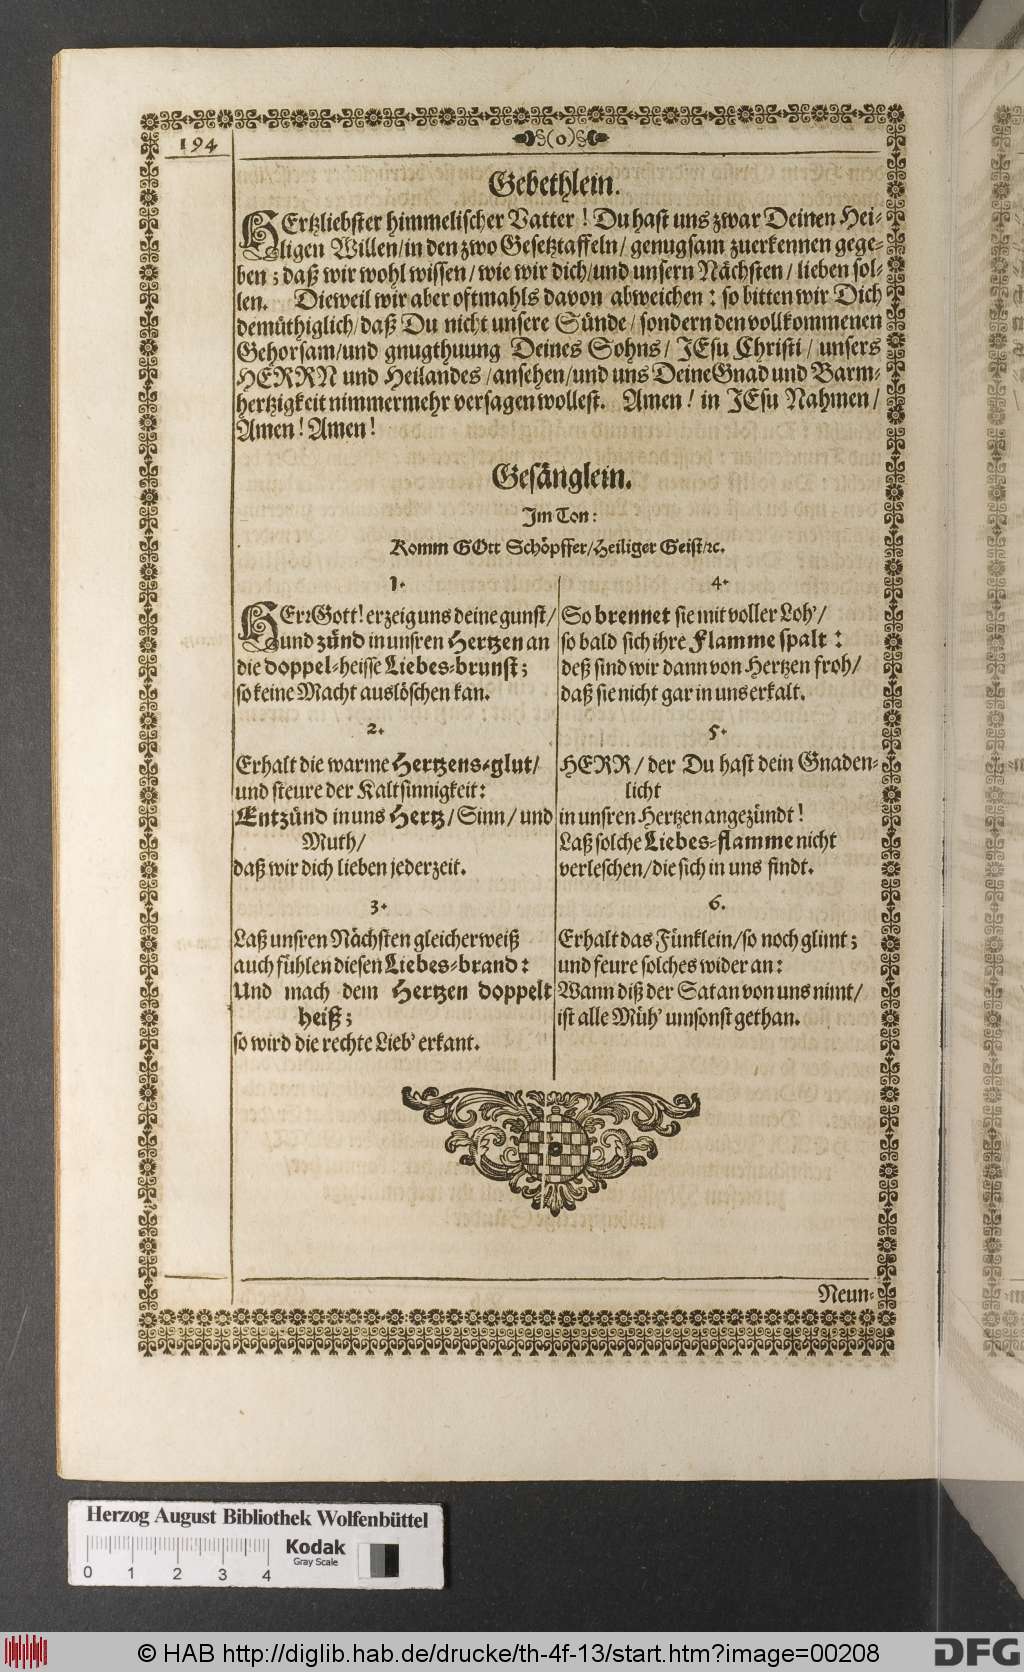 194
§(o)§
Gebethlein.
HErtzliebster himmelischer Vatter! Du hast uns zwar Deinen Hei-
ligen Willen/in den zwo Gesetztaffeln/ genugsam zuerkennen gege-
ben; daß wir wohl wissen/ wie wir dich/und unsern Nächsten/ lieben sol-
len. Dieweil wir aber oftmahls davon abweichen: so bitten wir Dich
demüthiglich/daß Du nicht unsere Sünde/ sondern den vollkommenen
Gehorsam/und gnugthuung Deines Sohns/ JEsu Christi/ unsers
HERRN und Heilandes/ansehen/und uns Deine Gnad und Barm-
hertzigkeit nimmermehr versagen wollest. Amen! in JEsu Nahmen/
Amen! Amen!
Gesänglein.
Im Ton:
Komm GOtt Schöpffer/Heiliger Geist/ꝛc.
1.
HErꝛ Gott! erzeig uns deine gunst/
und zünd in unsren Hertzen an
die doppel-heisse Liebes-brunst;
so keine Macht auslöschen kan.
2.
Erhalt die warme Hertzens-glut/
und steure der Kaltsinnigkeit:
Entzünd in uns Hertz/ Sinn/ und
Muth/
daß wir dich lieben jederzeit.
3.
Laß unsren Nächsten gleicherweiß
auch fühlen diesen Liebes-brand:
Und mach dem Hertzen doppelt
heiß;
so wird die rechte Lieb' erkant.
4.
So brennet sie mit voller Loh'/
so bald sich ihre Flamme spalt:
deß sind wir dann von Hertzen froh/
daß sie nicht gar in uns erkalt.
5.
HERR/ der Du hast dein Gnaden-
licht
in unsren Hertzen angezündt!
Laß solche Liebes-flamme nicht
verleschen/die sich in uns findt.
6.
Erhalt das Fünklein/so noch glimt;
und feure solches wider an:
Wann diß der Satan von uns nimt/
ist alle Müh' umsonst gethan.
Neun-
Herzog August Bibliothek Wolfenbüttel
Kodak
Gray Scale
0 1 2 3 4
© HAB http://diglib.hab.de/drucke/th-4f-13/start.htm?image=00208
DFG